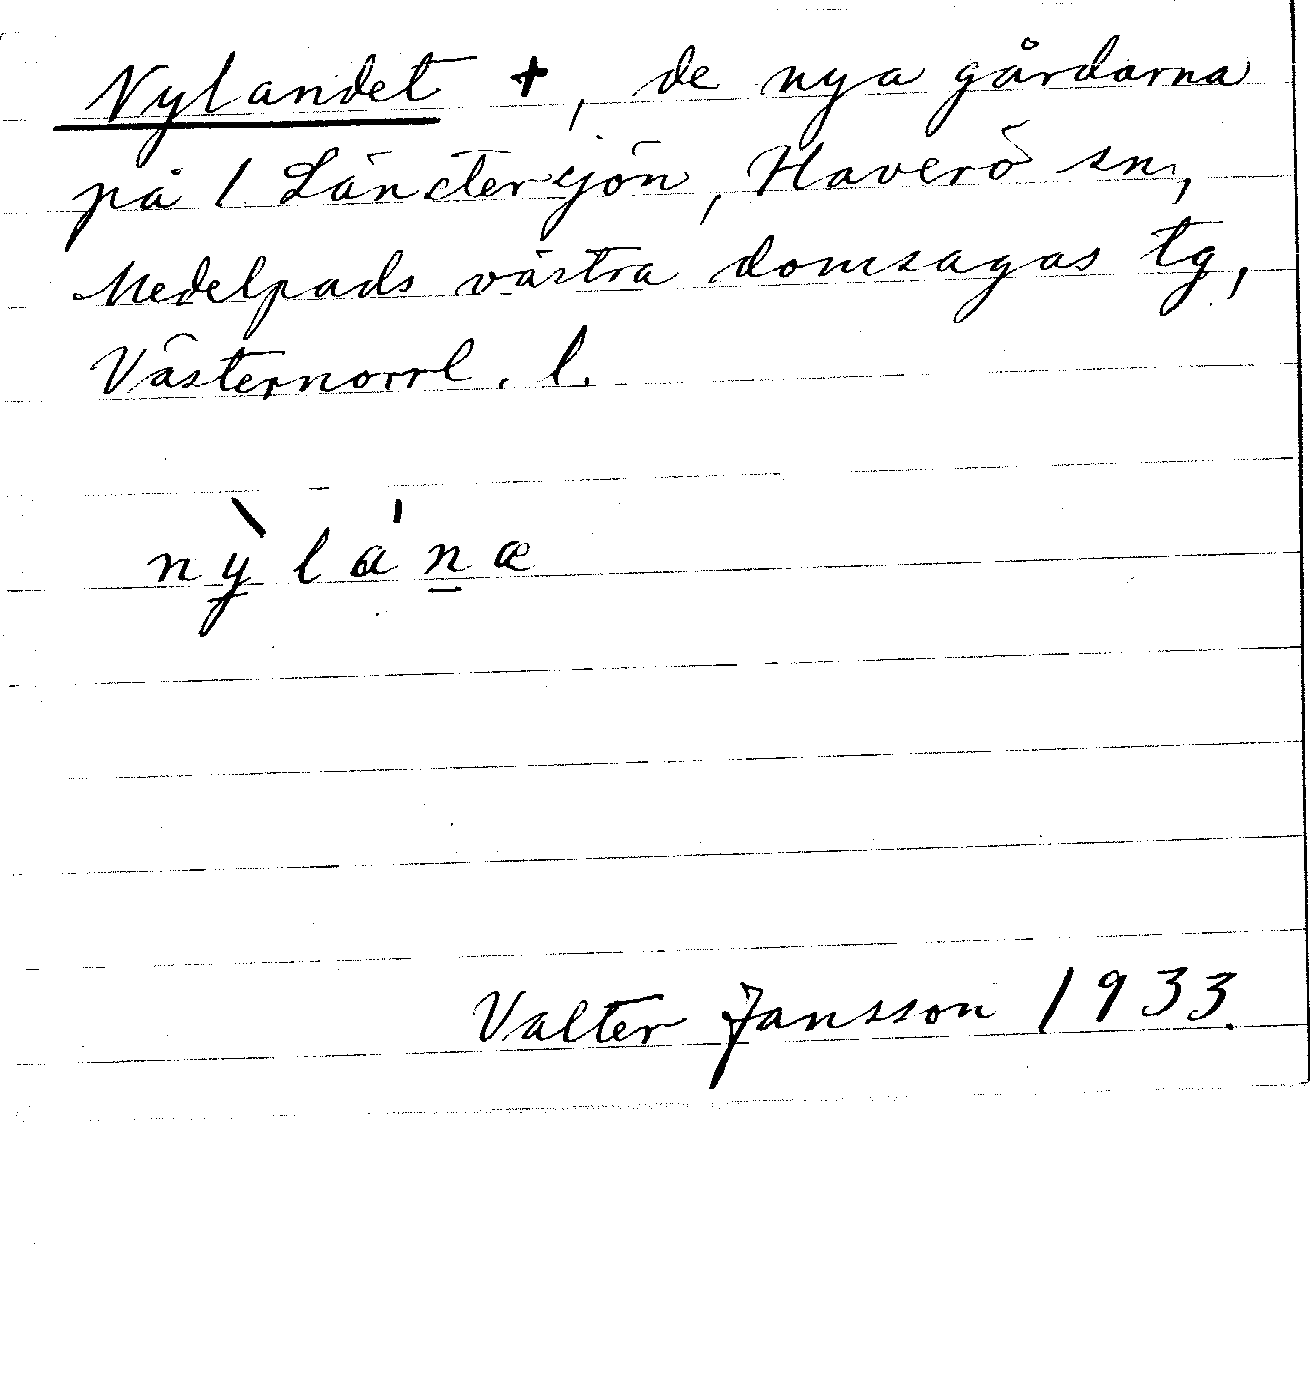 Nylandet +, de nya gårdarna
på 1 Länstersjön, Haverö sn,
Medelpads västra domsagas tg,
Västernorrl. l.
nỳ̠lán̠æ
Valter Jansson 1933.